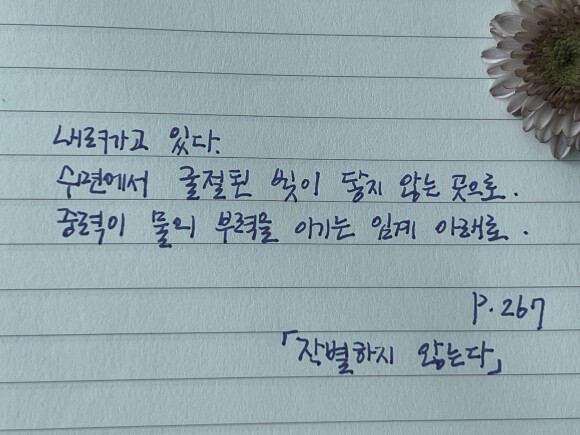 내려가고 있다.
수면에서 굴절된 빛이 닿지 않는 곳으로.
중력이 물의 부력을 이기는 임계 아래로.
P. 267
「작별하지 않는다」